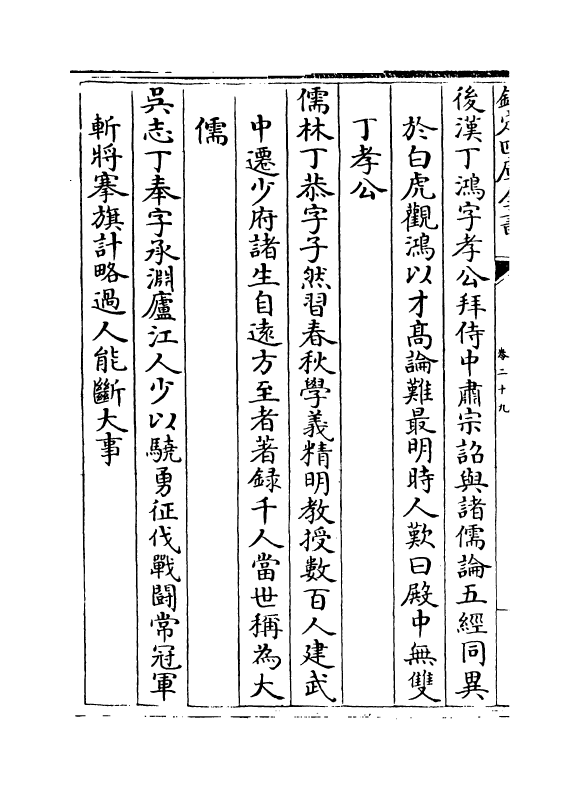 欽定四庫全書
卷二十九
後漢丁鴻字孝公拜侍中肅宗詔與諸儒論五經同異
於白虎觀鴻以才高論難最明時人歎曰殿中無雙
丁孝公
儒林丁恭字子然習春秋學義精明教授數百人建武
中遷少府諸生自遠方至者著録千人當世稱為大
儒
吳志丁奉字承淵廬江人少以驍勇征伐戰鬬常冠軍
斬將搴旗計略過人能斷大事